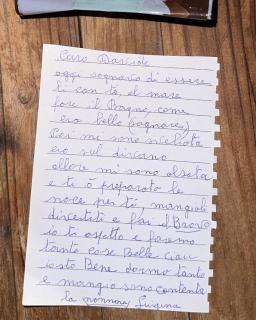 Caro Daniele
oggi sognavo di essere
li con te al mare
fare il Bagno come
ero bella (sognare)
Poi mi sono svegliata
ero sul divano
allora mi sono alzata
e ti ò preparato le
noce per te mangiali
divertiti e fai il Bravo
io ti aspetto e faremo
tante cose Belle ciau
io sto Bene dormo tanto
e mangio sono contenta
la nonnona